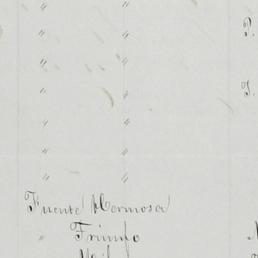 " "
" "
" " P.
" "
" " J.
" "
" "
Fuente Hermosa
" Triunfo